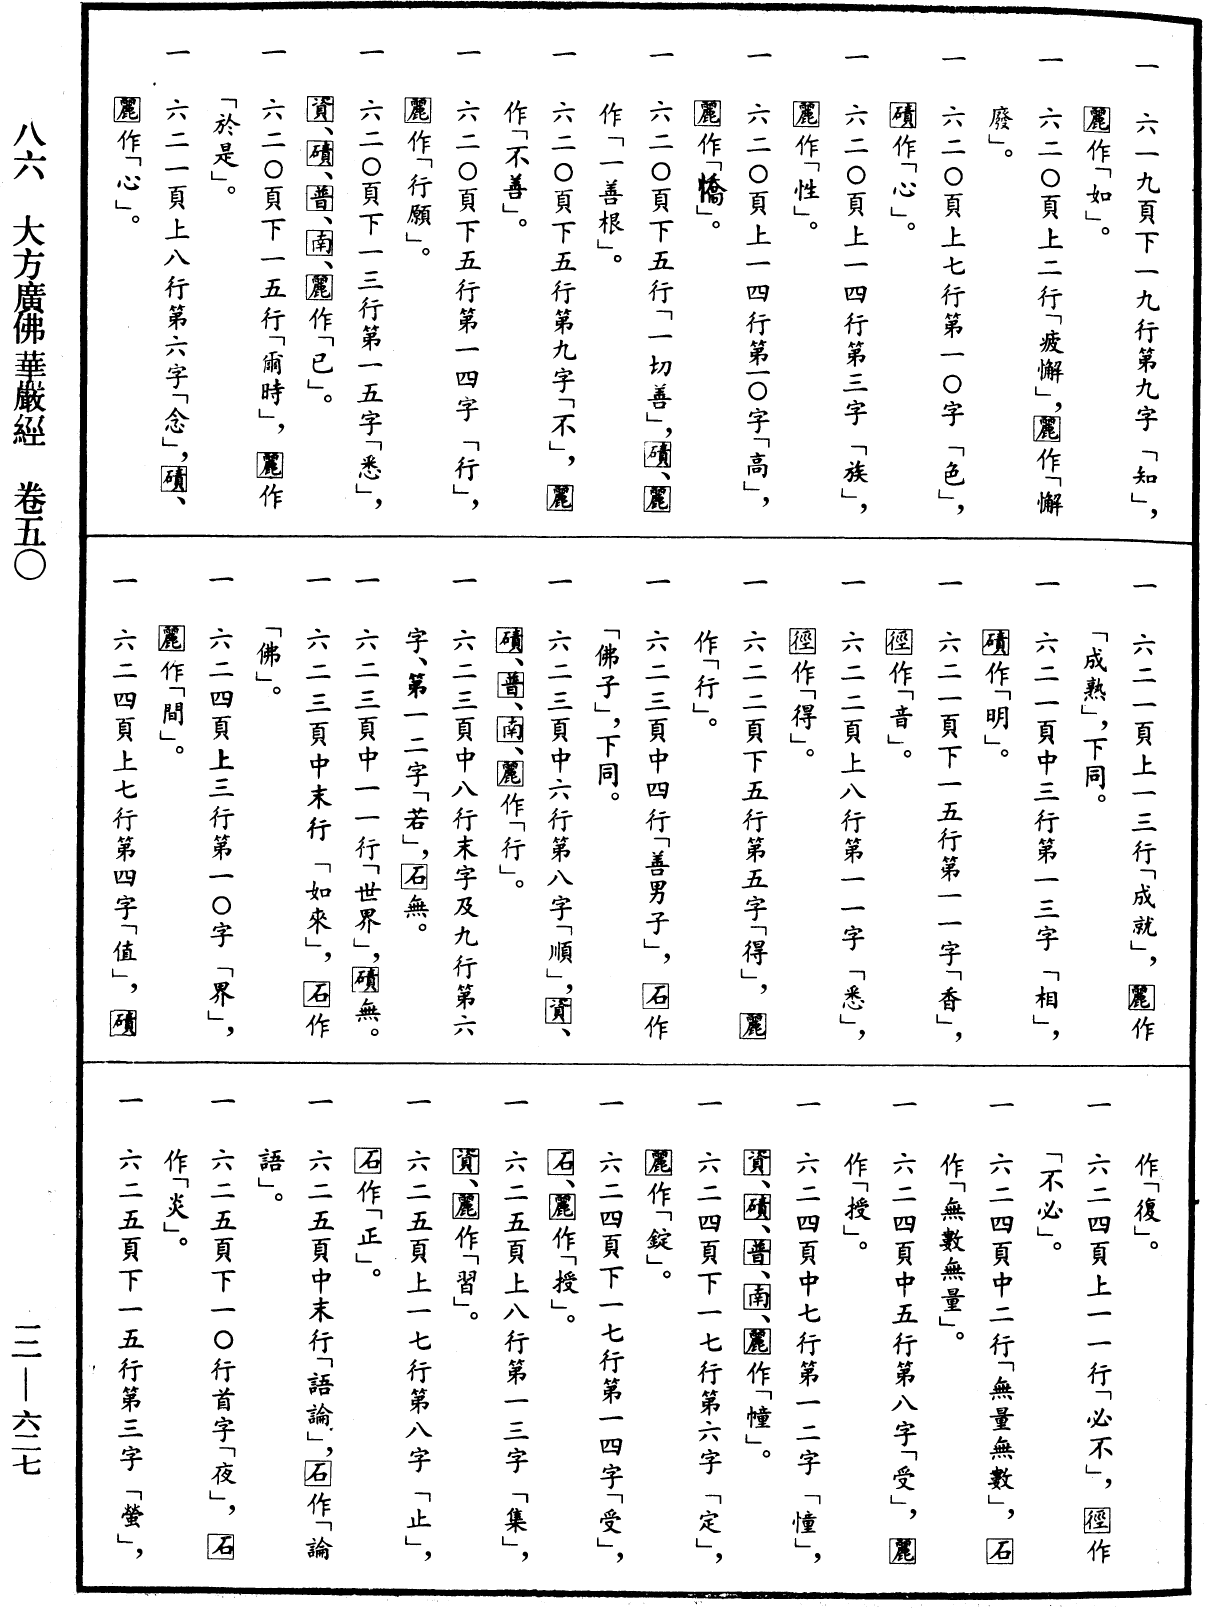 一　六一九頁下一九行第九字「知」，
麗作「如」。
一　六二〇頁上二行「疲懈」，麗作「懈
廢」。
一　六二〇頁上七行第一〇字「色」，
磧作「心」。
一　六二〇頁上一四行第三字「族」，
麗作「性」。
一　六二〇頁上一四行第一〇字「高」，
麗作「憍」。
一　六二〇頁下五行「一切善」，磧、麗
作「一善根」。
一　六二〇頁下五行第九字「不」，麗
作「不善」。
一　六二〇頁下五行第一四字「行」，
麗作「行願」。
一　六二〇頁下一三行第一五字「悉」，
資、磧、普、南、麗作「已」。
一　六二〇頁下一五行「爾時」，麗作
「於是」。
一　六二一頁上八行第六字「念」，磧、
麗作「心」。
一　六二一頁上一三行「成就」，麗作
「成熟」，下同。
一　六二一頁中三行第一三字「相」，
磧作「明」。
一　六二一頁下一五行第一一字「香」，
徑作「音」。
一　六二二頁上八行第一一字「悉」，
徑作「得」。
一　六二二頁下五行第五字「得」，麗
作「行」。
一　六二三頁中四行「善男子」，石作
「佛子」，下同。
一　六二三頁中六行第八字「順」，資、
磧、普、南、麗作「行」。
一　六二三頁中八行末字及九行第六
字、第一二字「若」，石無。
一　六二三頁中一一行「世界」，磧無。
一　六二三頁中末行「如來」，石作
「佛」。
一　六二四頁上三行第一〇字「界」，
麗作「間」。
一　六二四頁上七行第四字「值」，磧
作「復」。
一　六二四頁上一一行「必不」，徑作
「不必」。
一　六二四頁中二行「無量無數」，石
作「無數無量」。
一　六二四頁中五行第八字「受」，麗
作「授」。
一　六二四頁中七行第一二字「憧」，
資、磧、普、南、麗作「幢」。
一　六二四頁下一七行第六字「定」，
麗作「錠」。
一　六二四頁下一七行第一四字「受」，
石、麗作「授」。
一　六二五頁上八行第一三字「集」，
資、麗作「習」。
一　六二五頁上一七行第八字「止」，
石作「正」。
一　六二五頁中末行「語論」，石作「論
語」。
一　六二五頁下一〇行首字「夜」，石
作「炎」。
一　六二五頁下一五行第三字「螢」，
八六　大方廣佛華嚴經　卷五〇
一二—六二七